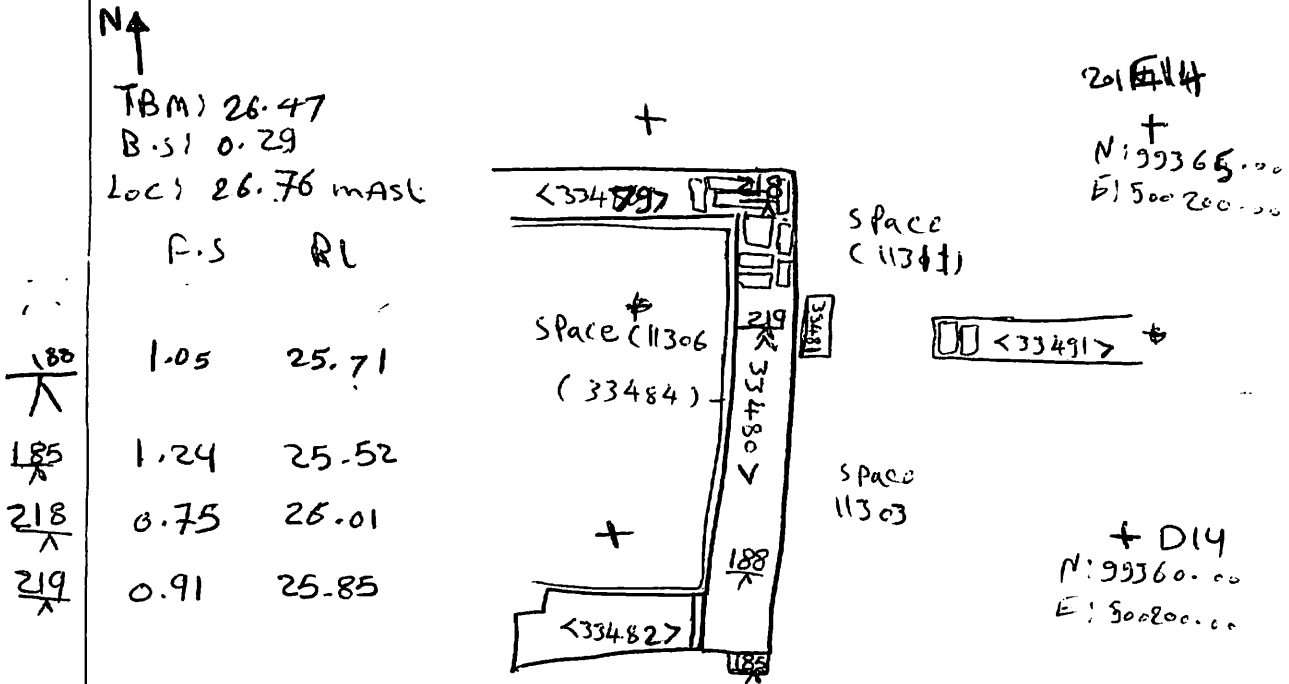 N
TBM: 26.47
B.S: 0.29
Loc: 26.76 mASL
F.S RL
188 1.05 25.71
185 1.24 25.52
218 0.75 26.01
219 0.91 25.85
218
219
<33480>
33481
Space (11306
(33484)
188
<33482>
185
Space
<33491>
Space
11303
N: 99365.00
E: 500200.00
D14
N: 99360.00
E: 500200.00